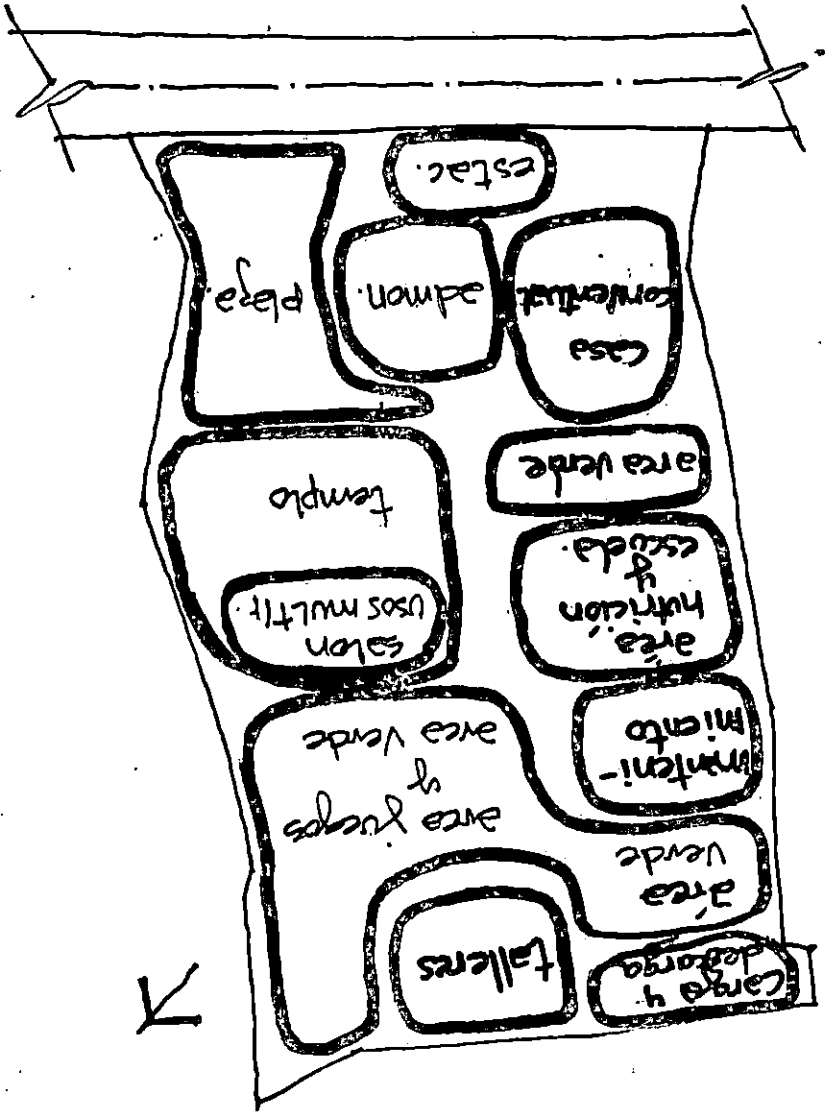 carga y
descarga
talleres
área
verde
area juegos
y
area verde
manteni-
miento
área
nutrición
y
escuela.
salon
USOS MULTIP.
templo
area verde
casa
conventual
admon.
plaza.
estac.